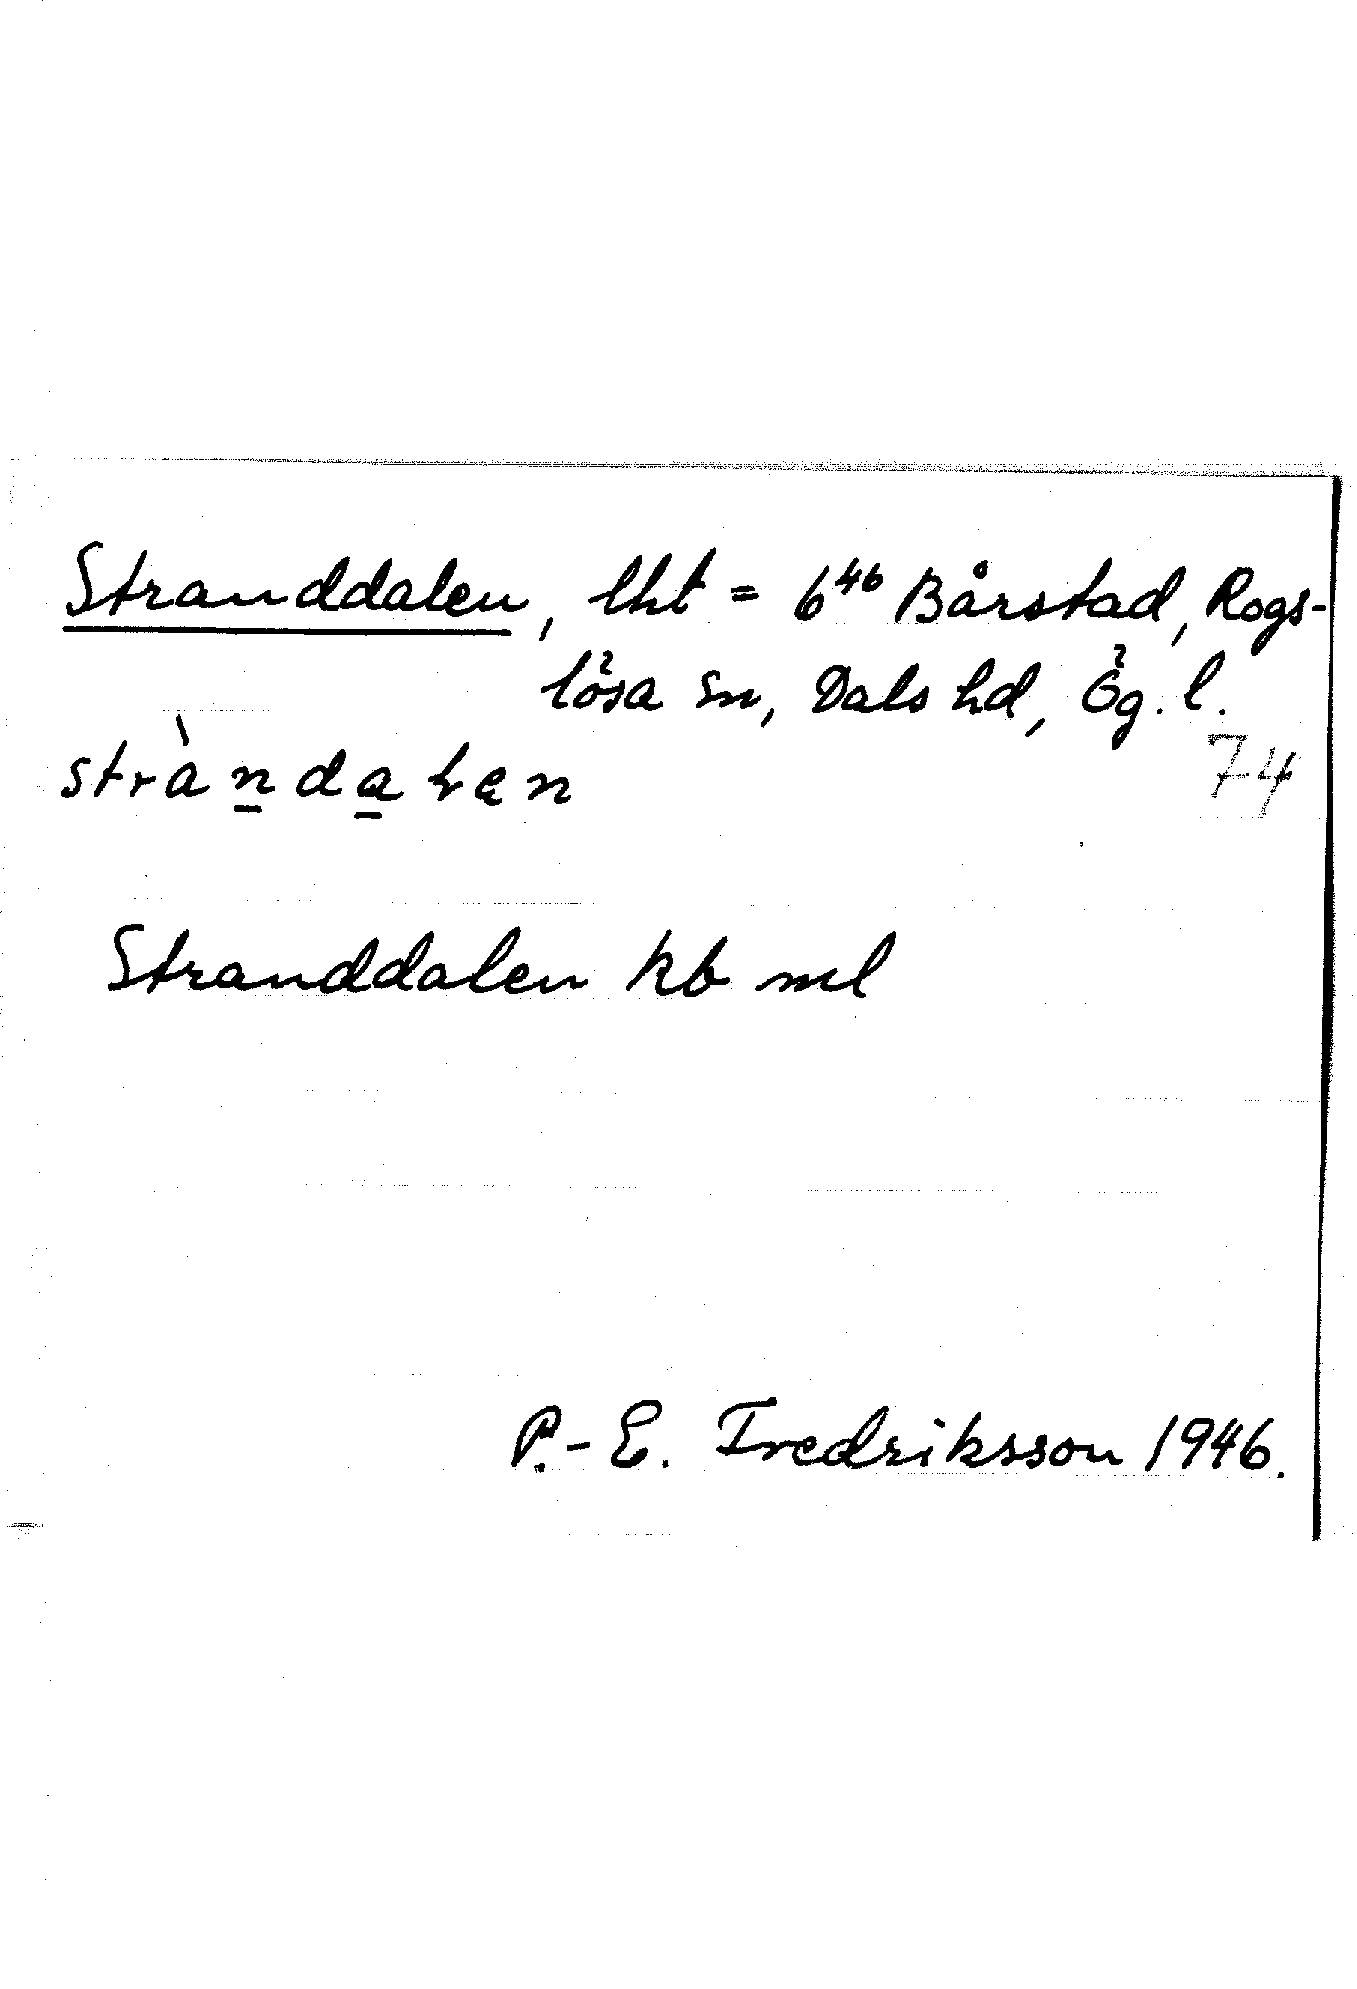 Stranddalen, lht = 6⁴⁶ Bårstad, Rogs-
lösa sn, Dals hd, Ög. l.
74
Stranddalen kb ml
P.-E. Fredriksson 1946.